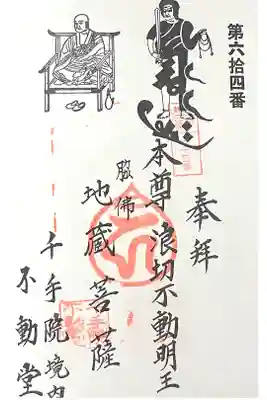 第六拾四番
奉拝
本尊浪切不動明王
脇佛
地蔵菩薩
千手院境内
不動堂